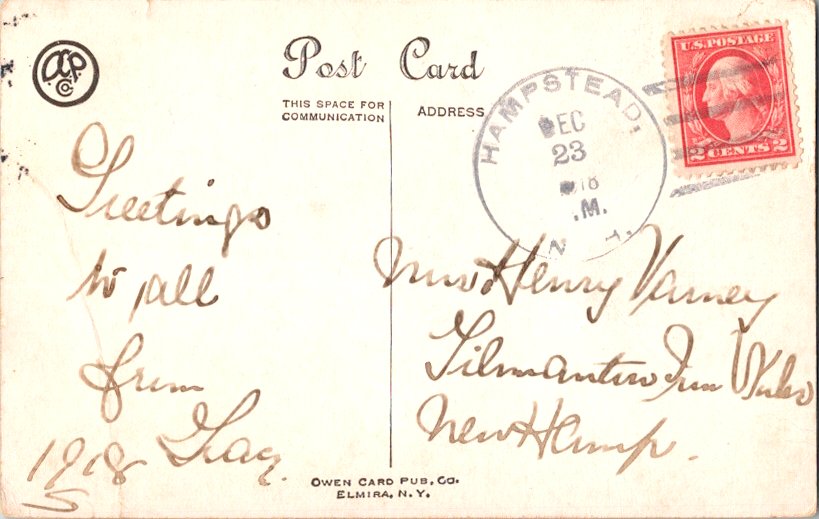 Post Card
THIS SPACE FOR
COMMUNICATION
ADDRESS
HAMPSTEAD,
DEC
23
1918
.M.
N.H.
U.S. POSTAGE
2 CENTS 2
Greetings
to all
from
1918
Mrs Henry Varney
Gilmanton Iron Works
New Hamp.
OWEN CARD PUB. CO.
ELMIRA, N.Y.